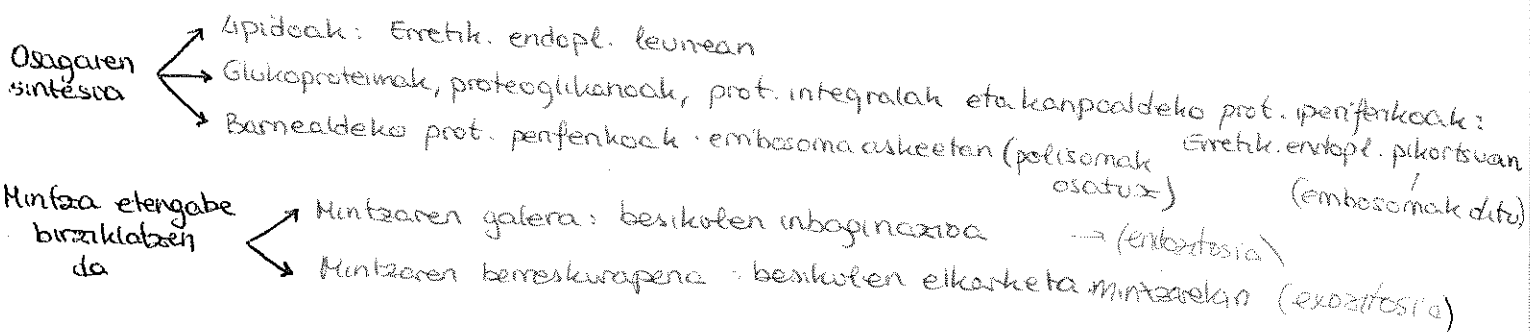 Osagaien sintesia
Lipidoak: Erretik. endopl. leunean
Glukoproteinak, proteoglikanoak, prot. integralak eta kanpoaldeko prot. periferikoak:
Erretik. endopl. pikortsuan
(erribosomak ditu)
Barnealdeko prot. periferikoak: erribosoma askeetan (polisomak osatuz)
Mintza etengabe birziklatzen da
Mintzaren galera: besikulen inbaginazioa → (endozitosia)
Mintzaren berreskurapena: besikulen elkarketa mintzarekin (exozitosia)